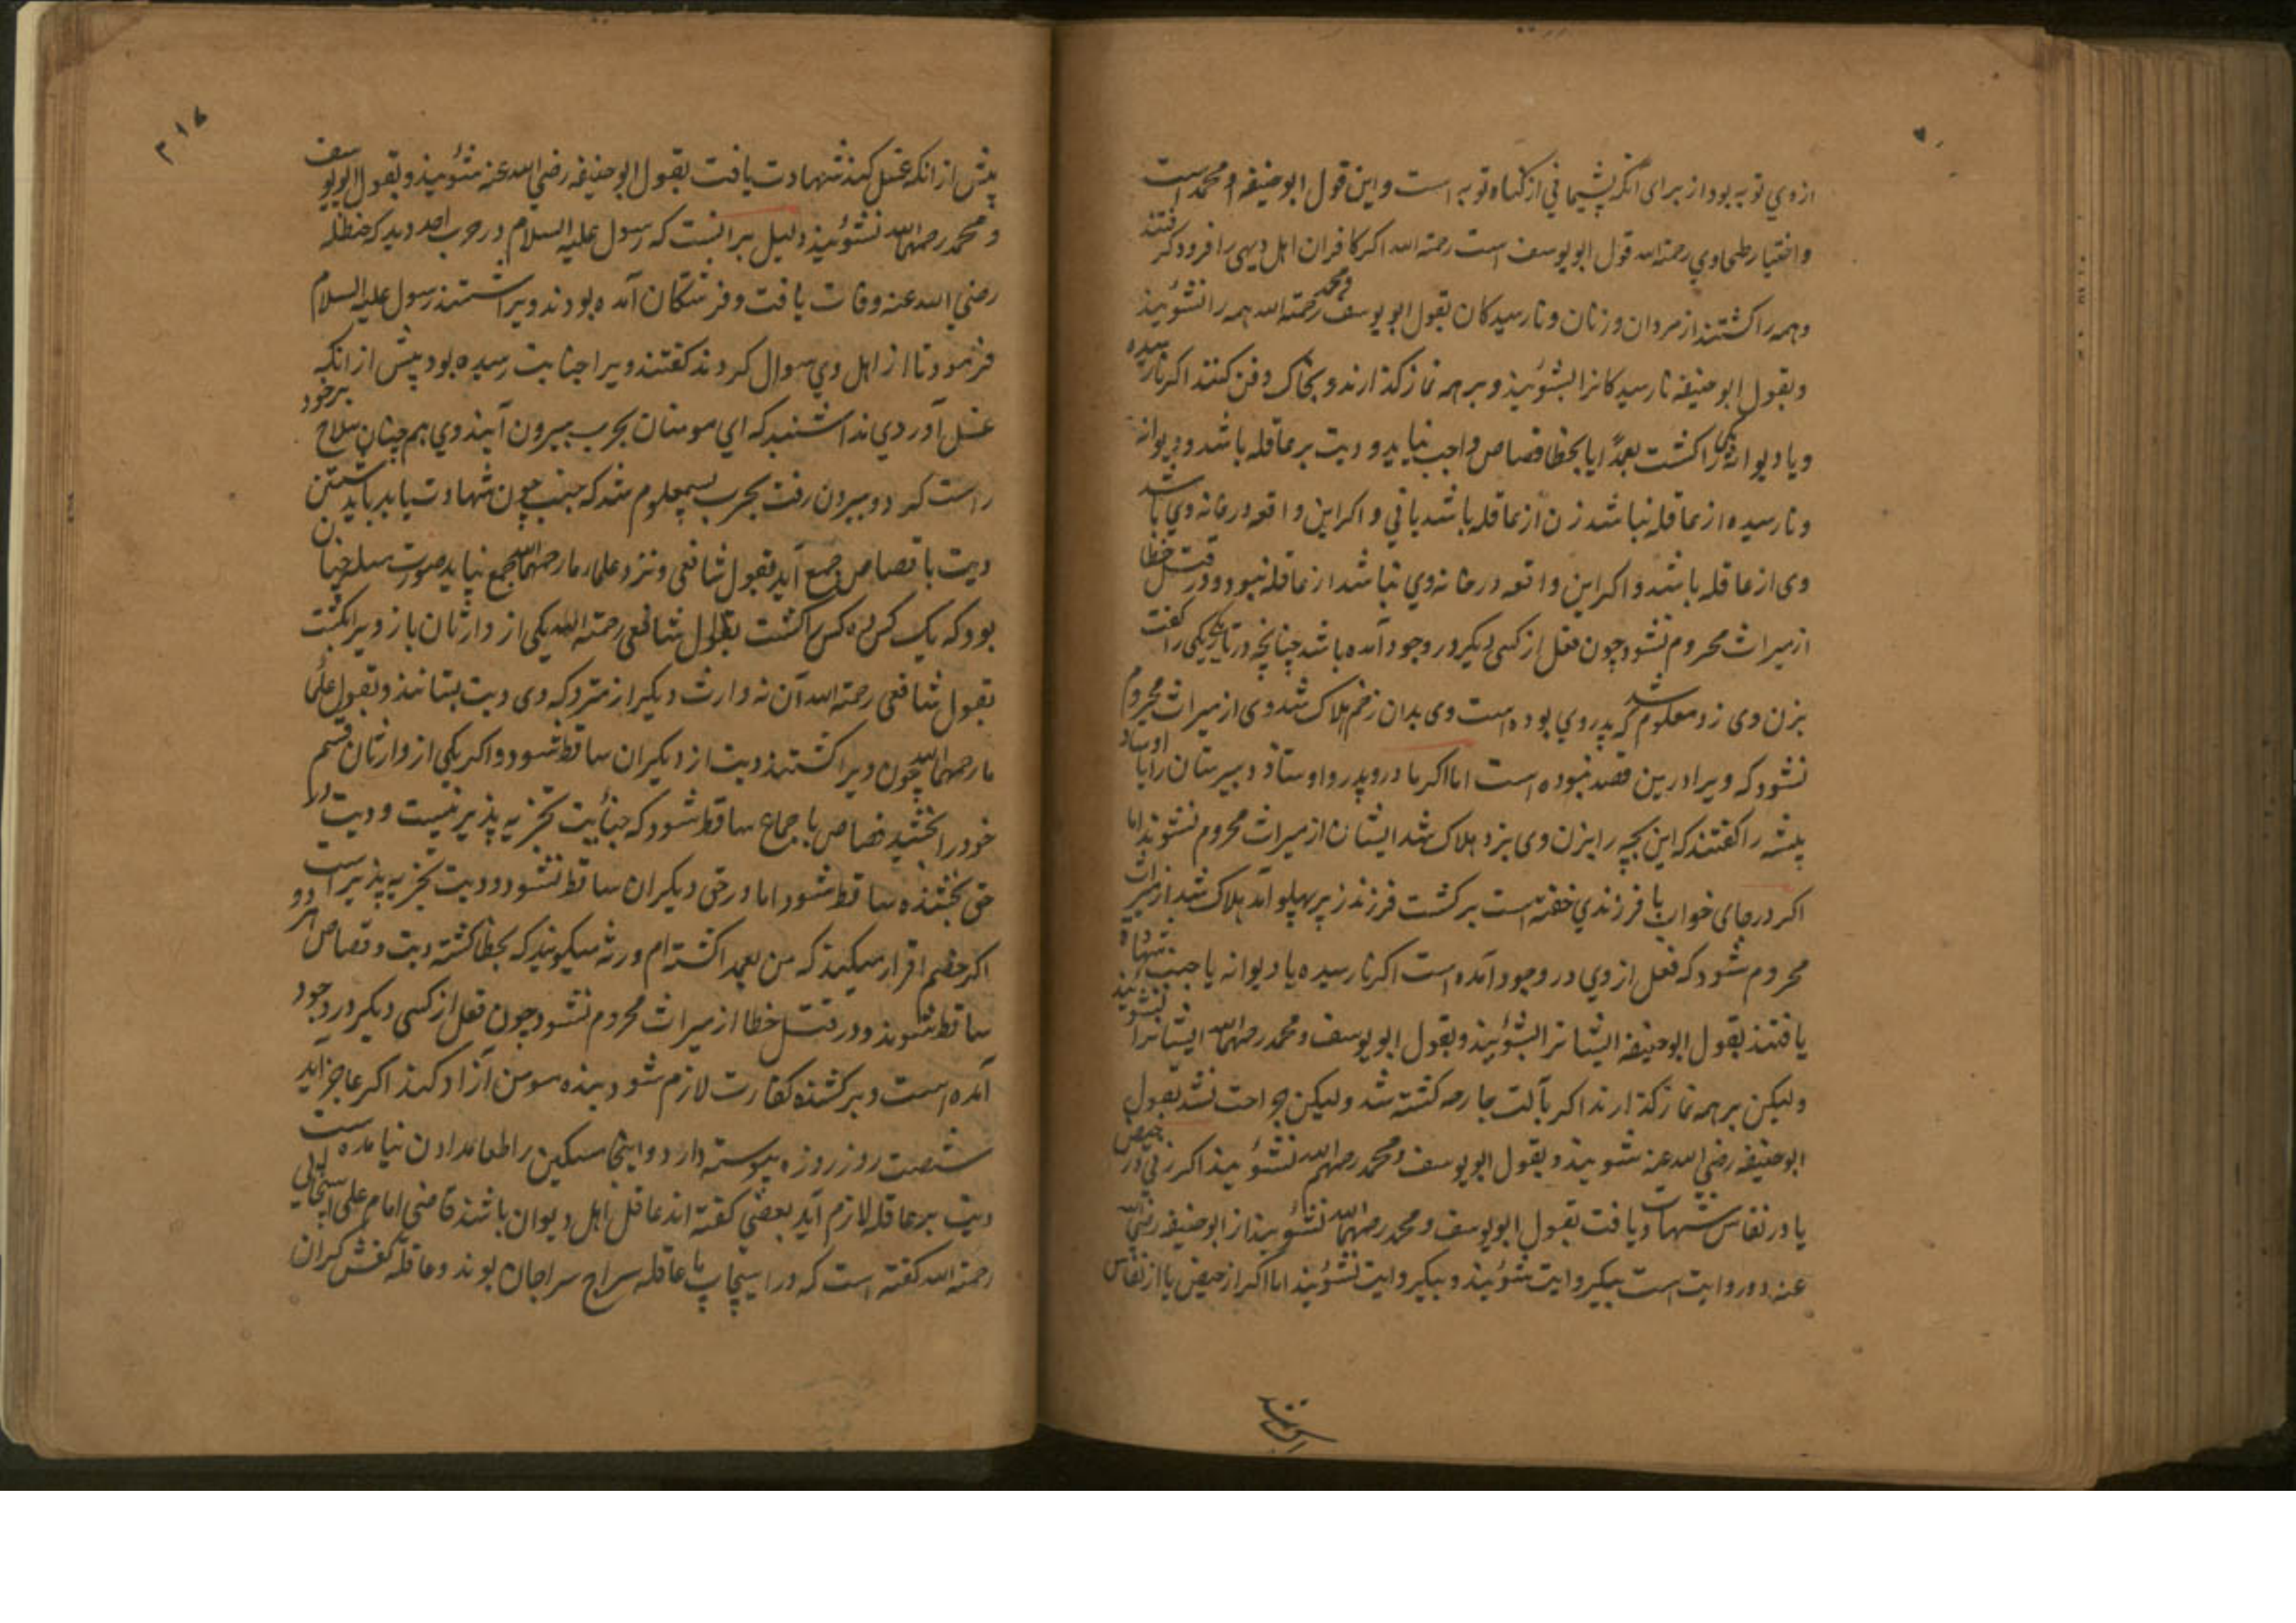 ازوی توبه بود از برای آنکه پشیمانی از کناه توبه است و این قول ابوحنیفه و محمد است
و اختیار طحاوی رحمة الله قول ابو یوسف است رحمة الله اکر کافران اهل دیهی را فرود کرفتند
و همه را کشتند از مردان و زنان و نارسیدکان بقول ابو یوسف و محمد رحمة الله همه را نشوئیند
و بقول ابوحنیفه نارسیدکانرا بشوئیند و بر همه نماز کذارند و بخاک دفن کنند اکر نارسیده
و یا دیوانه یکی را کشت بعمد یا بخطا قصاص واجب نیاید و دیت بر عاقله باشد و دیوانه
و نارسیده از عاقله نباشد زن از عاقله باشد یا نی و اکر این واقعه در خانه وی باشد
وی از عاقله باشد و اکر این واقعه در خانه وی نباشد از عاقله نبود و در قتل خطا
از میراث محروم نشود چون فعل از کسی دیکر در وجود آمده باشد چنانچه در تاریکی یکی را کفت
بزن وی زد معلوم شد که پدر وی بوده است وی بدان زخم هلاک شد وی از میراث محروم
نشود که ویرا درین قصد نبوده است اما اکر مادر و پدر و اوستاد دبیرستان را یا اوستاد
پیشه را کفتند که این بچه را بزن وی بزد هلاک شد ایشان از میراث محروم نشوند اما
اکر در جای خواب با فرزندی خفته است برکشت فرزند زیر پهلو آمد هلاک شد از میراث
محروم شود که فعل از وی در وجود آمده است اکر نارسیده یا دیوانه یا جنب شهادة
یافتند بقول ابوحنیفه ایشانرا بشوئیند و بقول ابو یوسف و محمد رحمهما الله ایشانرا نشوئیند
ولیکن بر همه نماز کذارند اکر بآلت جارحه کشته شد ولیکن جراحت نشد بقول
ابوحنیفه رضی الله عنه شویند و بقول ابو یوسف و محمد رحمهم الله نشوئیند اکر زنی در حیض
یا در نفاس شهادت یافت بقول ابو یوسف و محمد رحمهما الله نشوئیند از ابوحنیفه رضی الله
عنه دو روایت است بیکروایت شوئیند و بیکروایت نشوئیند اما اکر از حیض یا از نفاس
۳۱۶
پیش از انکه غسل کند شهادت یافت بقول ابوحنیفه رضی الله عنه شوئیند و بقول ابویوسف
و محمد رحمهما الله نشوئیند دلیل بر انست که رسول علیه السلام در حرب احد دید که حنظله
رضی الله عنه وفات یافت و فرشتکان آمده بودند ویرا شستند رسول علیه السلام
فرمود تا از اهل وی سوال کردند کفتند ویرا جنابت رسیده بود پیش از انکه
غسل آورد ندا شنید که ای مومنان بحرب بیرون آیند وی هم چنان سلاح برخود
راست کرد و بیرون رفت بحرب پس معلوم شد که جنب چون شهادت یابد باید شستن
دیت با قصاص جمع آید بقول شافعی و نزد علماء ما رحمهما الله جمع نیاید صورت مسله چنان
بود که یک کس ده کس را کشت بقول شافعی رحمة الله یکی از وارثان باز ویرا بکشت
بقول شافعی رحمة الله آن نه وارث دیکر از متروکه وی دیت بستانند و بقول علماء
ما رحمهما الله چون ویرا کشتند دیت از دیکران ساقط شود و اکر یکی از وارثان قسم
خود را بخشید قصاص باجماع ساقط شود که جنایت تجزیه پذیر نیست و دیت در
حق بخشنده ساقط شود اما در حق دیکران ساقط نشود و دیت تجزیه پذیر است
اکر خصم اقرار میکند که من بعمد کشته ام ورثه میکویند که بخطا کشته دیت و قصاص هر دو
ساقط شوند و در قتل خطا از میراث محروم نشود چون فعل از کسی دیکر در وجود
آمده است و بر کشنده کفارت لازم شود بنده مومن آزاد کند اکر عاجز آید
شصت روز روزه پیوسته دارد و اینجا مسکین را طعام دادن نیامده است
دیت بر عاقله لازم آید بعضی کفته اند عاقل اهل دیوان باشند قاضی امام علی اسپیجابی
رحمة الله کفته است که در اسپیجاب ما عاقله سراج سراجان بوند و عاقله کفش کران